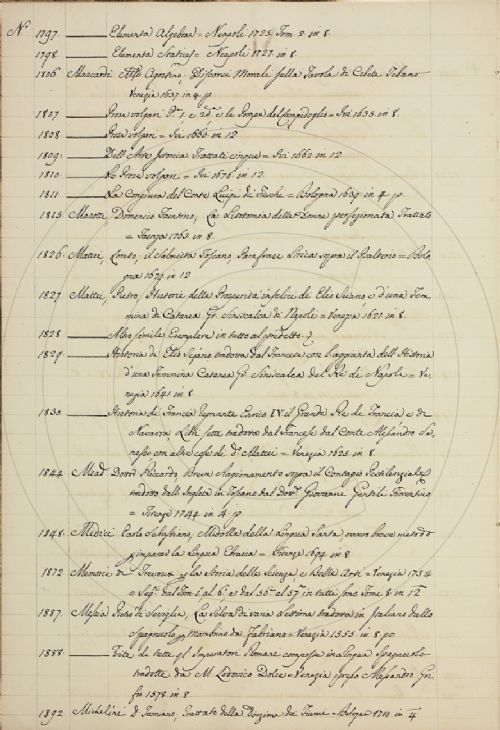 N° 1797 ——— Elementa Algebrae = Neapoli 1725 Tom. 2 in 8.
1798 ——— Elementa Statices = Neapoli 1727 in 8.
1806 Mascardi Agostino, Discorsi Morali sulla Tavola di Cebete Tebano
Venezia 1637 in 4. p
1807 ——— Prose volgari P. 1. e 2da. e le Pompe del Campidoglio = Ivi 1635 in 8.
1808 ——— Prose volgari = Ivi 1660 in 12
1809 ——— Dell'Arte Istorica Trattati cinque = Ivi 1660 in 12
1810 ——— Le Prose volgari = Ivi 1676 in 12
1811 ——— La Congiura del Conte Luigi de Fieschi = Bologna 1639 in 4. p
1815 Domenico Faustino, La Trattato
= Faenza 1763 in 8
1826 Mattei, Loreto, il Salmista Toscano, Parafrasi Lirica sopra il Salterio = Bolo
gna 1679 in 12
1827 Mattei, Pietro, Historie delle Prosperità infelici di Elio Seiano, e d'una Fem
mina di Catanea Gr. Siniscalca di Napoli = Venezia 1621 in 8.
1828 ——— Altro simile Esemplare in tutto al predetto.
1829 ——— Historia di Elio Sejano tradotta dal Francese con l'aggiunta dell'Historia
d'una Femmina Catanea Gr. Siniscalca del Re di Napoli = Ve
nezia 1641 in 8
1830 ——— Historia di Francia Regnante Enrico IV. il Grande Re di Francia e di
Navarra, Libri sette tradotta dal Francese dal Conte Alessandro Se
nesio con altre cose di d. Mattei = Venezia 1625 in 8.
1844 Mead Dottr Riccardo Breve Ragionamento sopra il Contagio Pestilenziale
tradotto dall'Inglese in Toscano dal Dottr Giovanni Gentili Fiorentino
= Firenze 1744 in 4. p
1848 Medici Paolo Sebastiano, Midolla della Lingua Santa, ovvero breve metodo
p imparar la Lingua Ebraica = Firenze 1694 in 8
1872 Memorie di Trevoux p la Storia delle Scienze, e Belle Arti = Venezia 1754
e Seg. dal Tom. 1. al 6. e dal 55. al 57. in tutti sono Tom. 8 in 12
1887 Messia Pietro di Seviglia, La Selva di varia Lettione tradotta in Italiano dallo
Spagnuolo p Mambrino da Fabriano = Venezia 1555 in 8 po
1888 ——— Vite di tutti gl'Imperatori Romani composte in Lingua Spagnuola
tradotte da M. Lodovico Dolce = Venezia presso Alessandro Gri
fio 1578 in 8
1892 Michelini D. Famiano, Trattato della Direzione de Fiumi = Bologna in 4